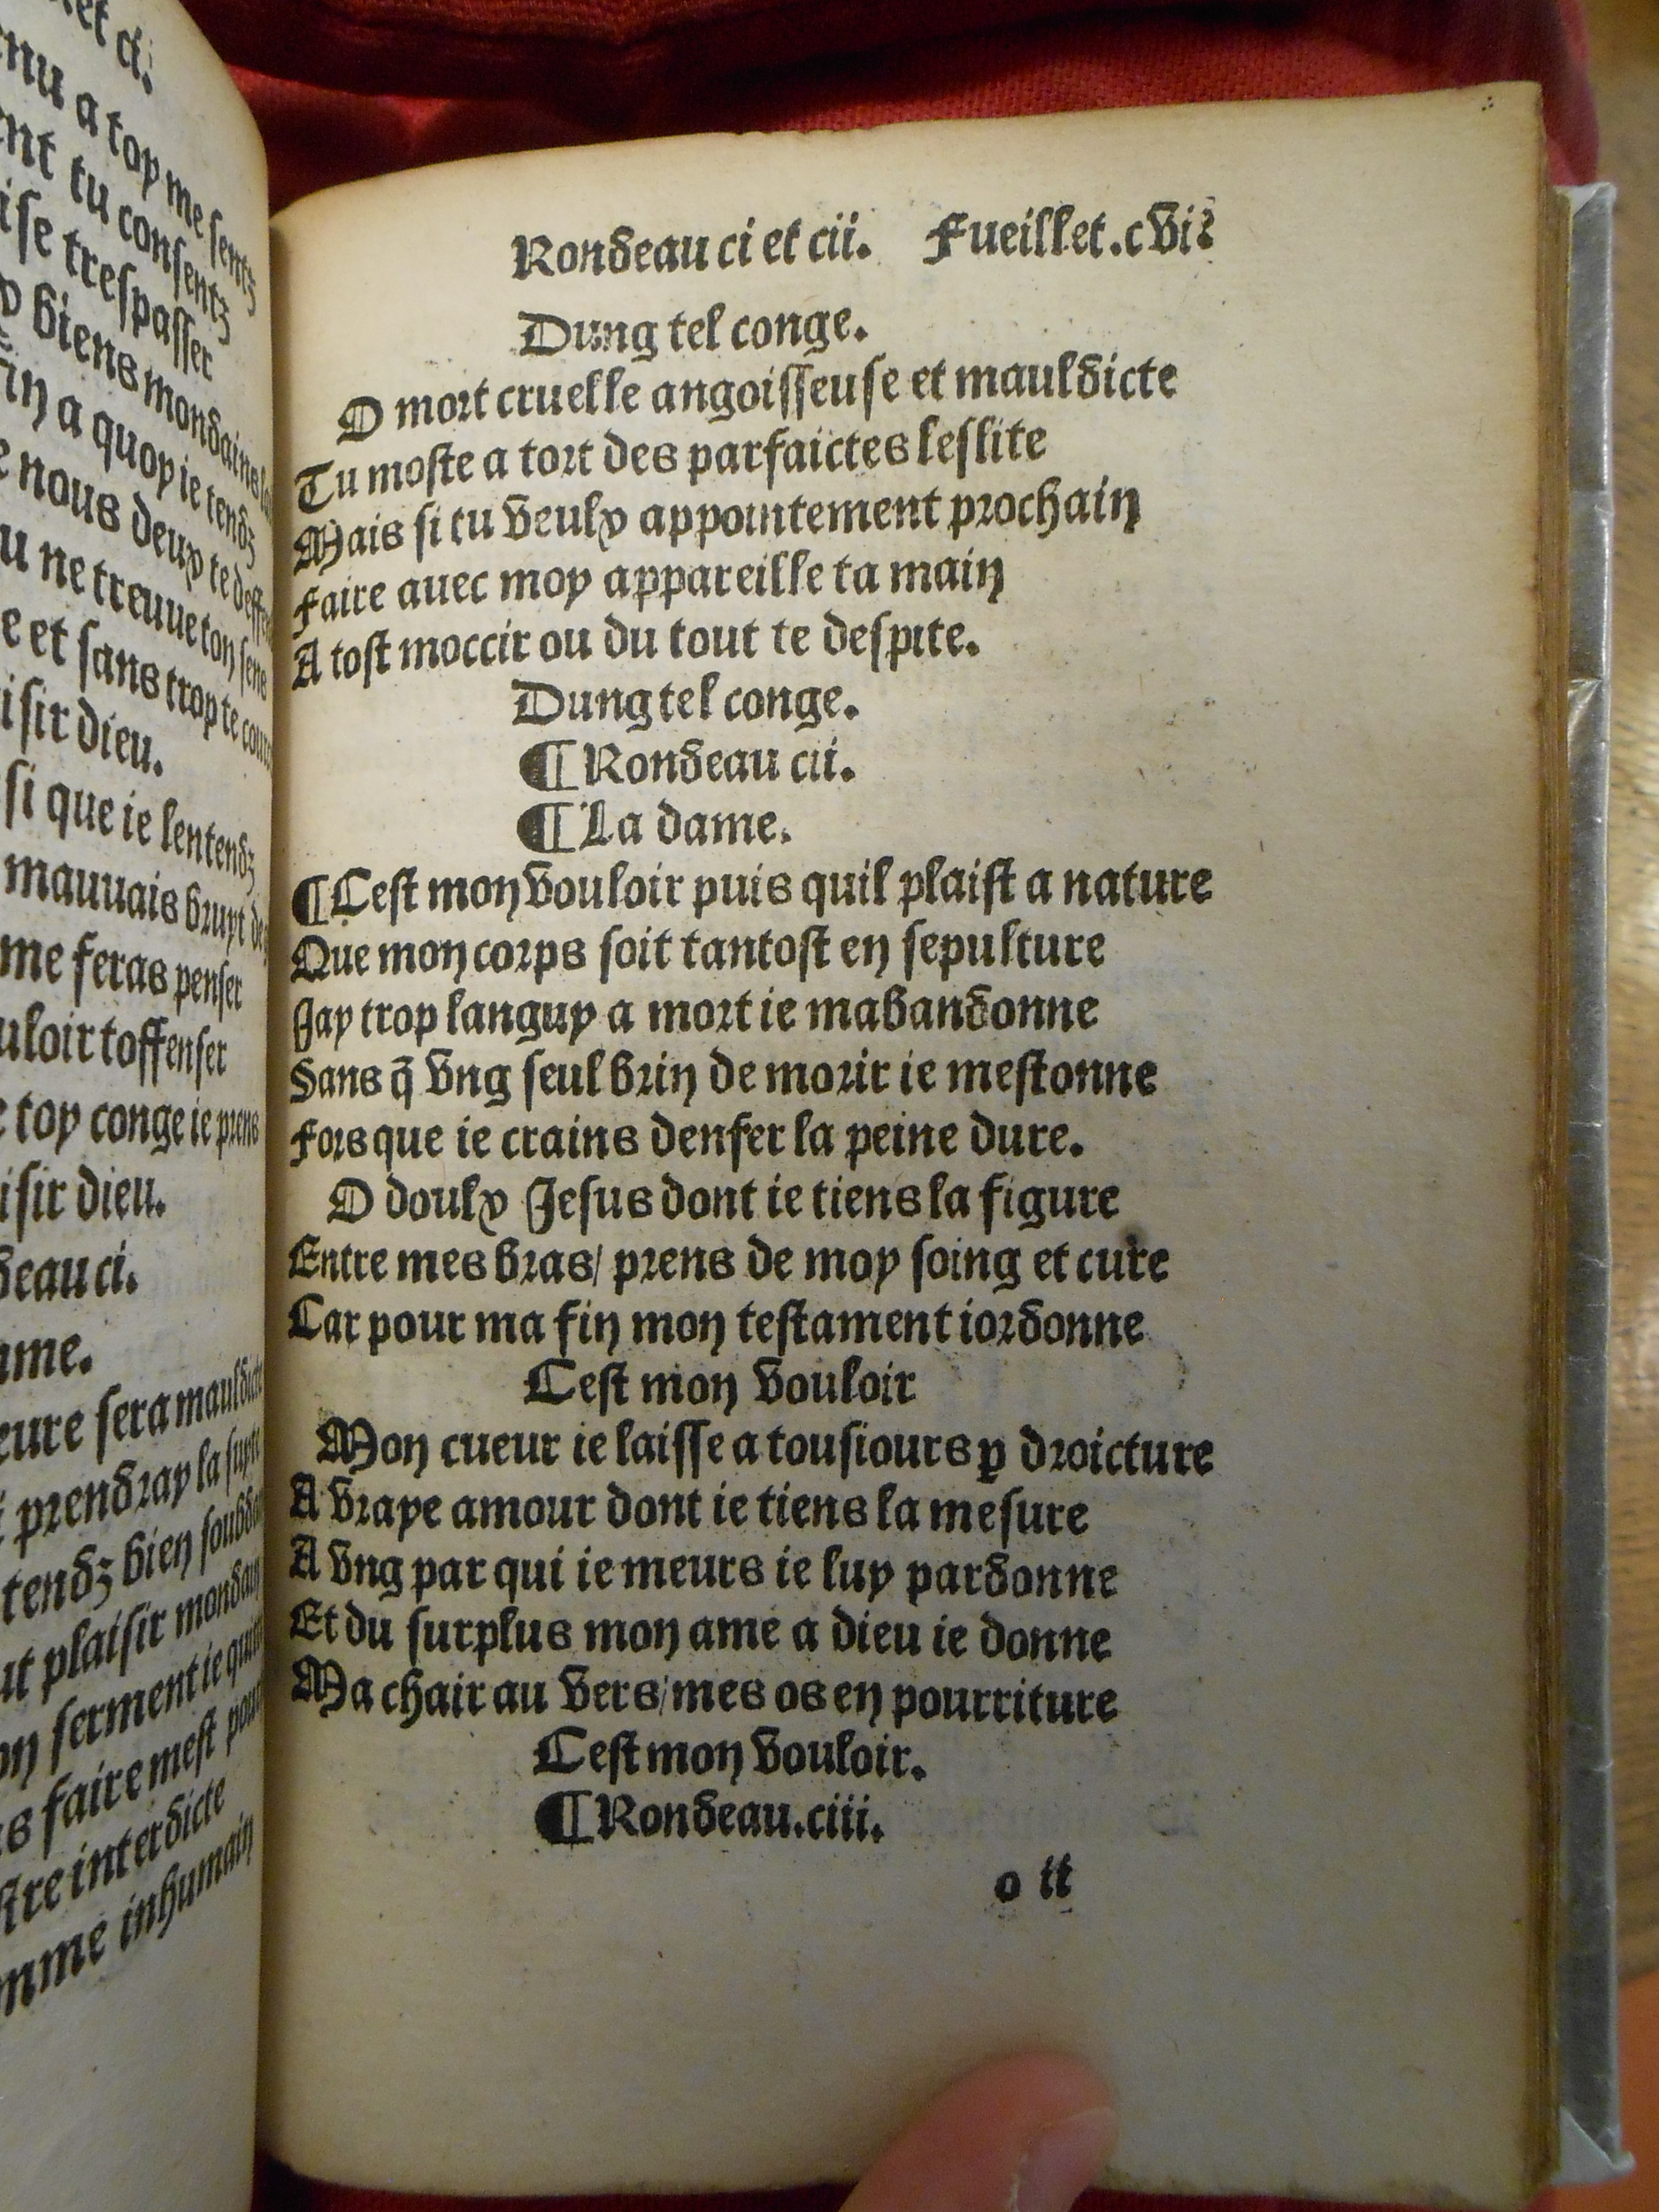 et ci.
nu a toy me sentz
nt tu consentz
ise trespasser
biens mondains
in a quoy ie tendz
e nous deux te
u ne treuue ton sens
e et sans trop te
isir dieu.
si que ie lentendz
mauuais bruyt
me feras penser
uloir toffenser
e toy conge ie prens
isir dieu.
deau ci.
ame.
eure sera mauldicte
prendray la
tendz bien
ut plaisir
on serment ie
s faire mest
stre interdicte
mme inhumain
Rondeau ci et cii. Fueillet.cvi
Dung tel conge.
O mort cruelle angoisseuse et mauldicte
Tu moste a tort des parfaictes leslite
Mais si tu veulx appointement prochain
Faire auec moy appareille ta main
A tost moccir ou du tout te despite.
Dung tel conge.
¶ Rondeau cii.
¶ La dame.
¶ Cest mon vouloir puis quil plaist a nature
Que mon corps soit tantost en sepulture
Jay trop languy a mort ie mabandonne
Sans q̄ vng seul brin de morir ie mestonne
Fors que ie crains denfer la peine dure.
O doulx Jesus dont ie tiens la figure
Entre mes bras/ prens de moy soing et cure
Car pour ma fin mon testament iordonne
Cest mon vouloir
Mon cueur ie laisse a tousiours ꝑ droicture
A vraye amour dont ie tiens la mesure
A vng par qui ie meurs ie luy pardonne
Et du surplus mon ame a dieu ie donne
Ma chair au vers/mes os en pourriture
Cest mon vouloir.
¶ Rondeau.ciii.
o ii